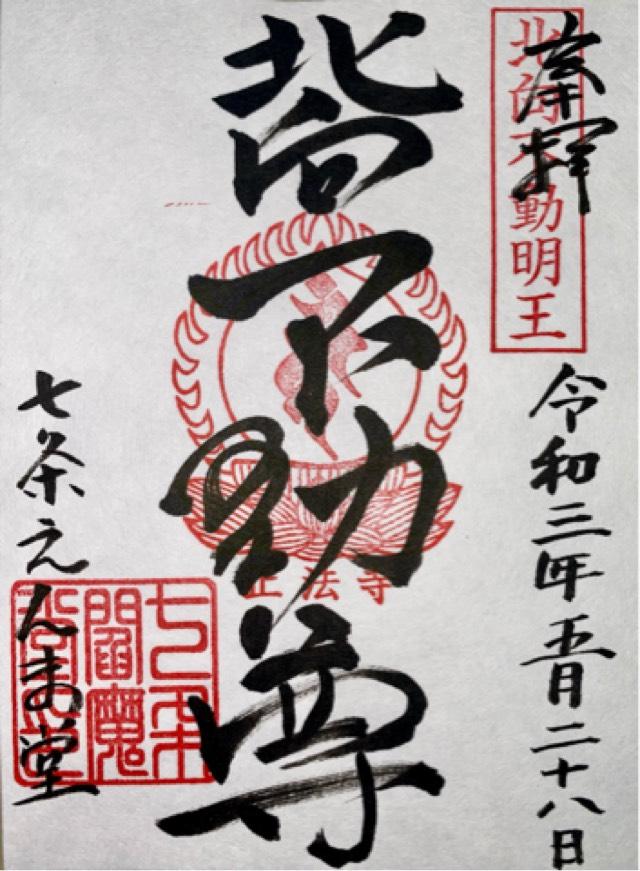 奉拝
北向不動明王
令和三年五月二十八日
北向不動尊
正法寺
七条えんま堂
七条
閻魔
堂